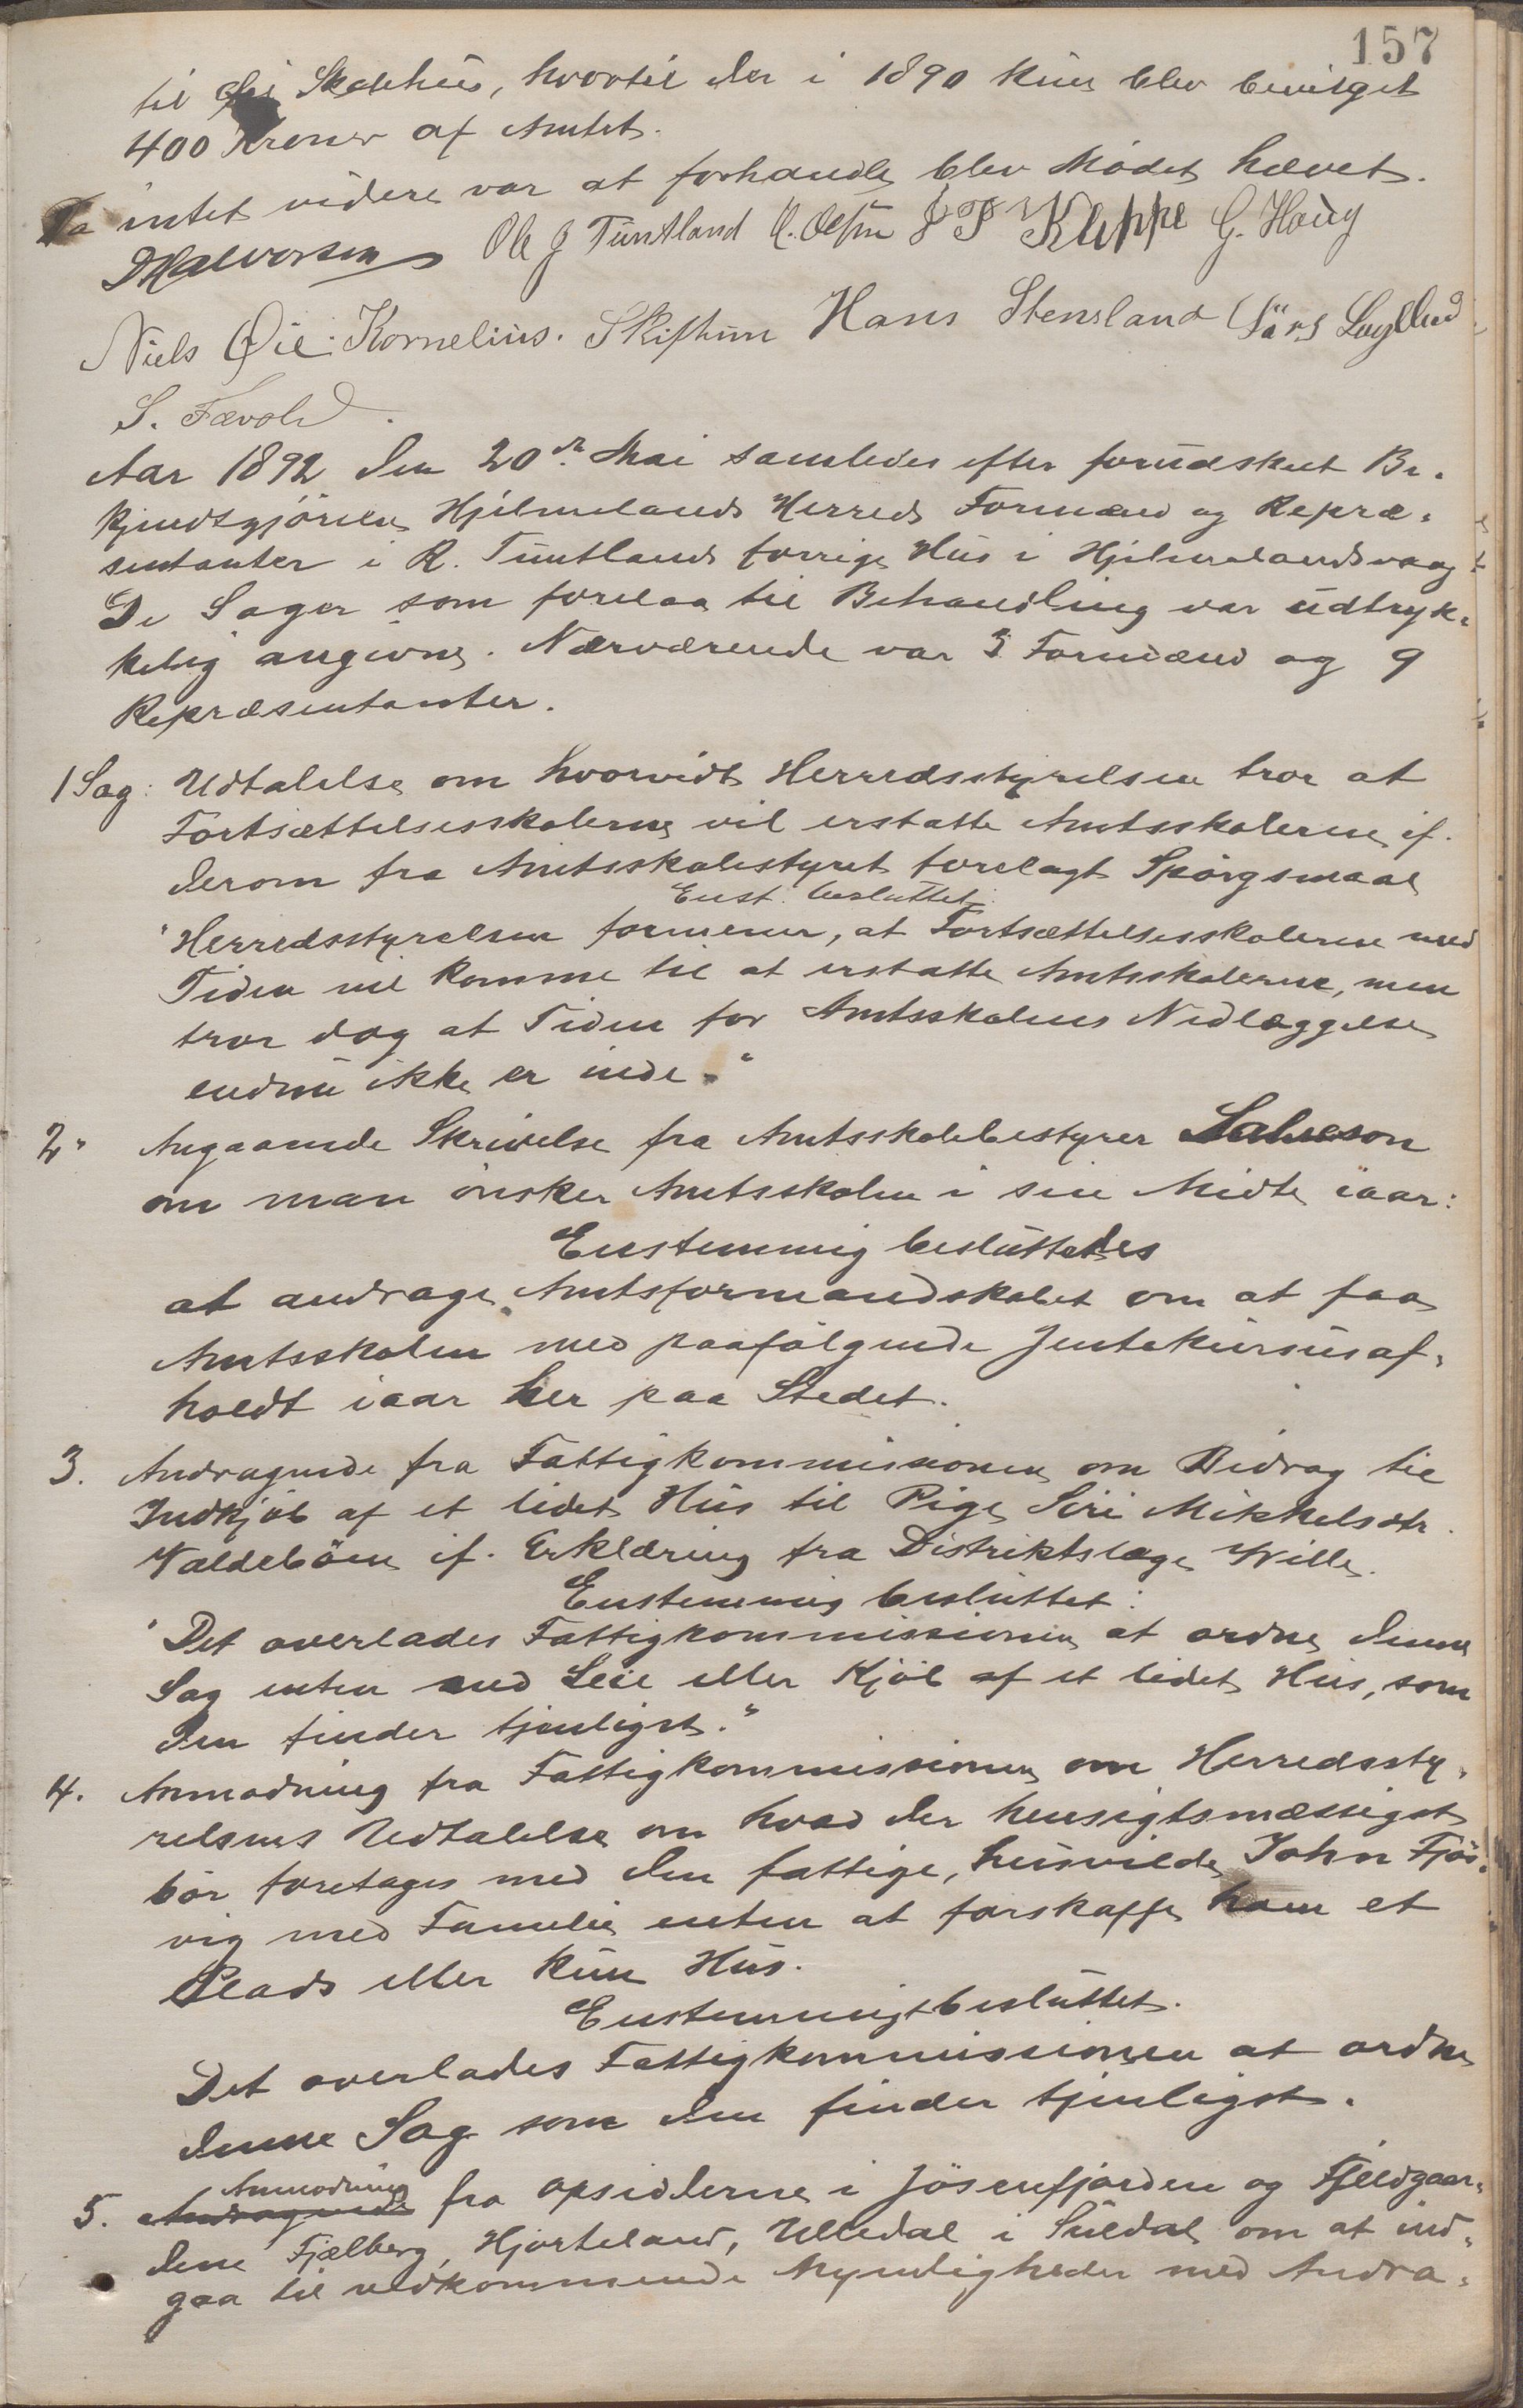 157
til Skolehus, hvortil der i 1890 kun blev bevilget
400 Kroner af Amtet.
Da intet videre var at forhandle blev Mødet hævet.
Halvorsen Ole J Tuntland J T Kleppe G. Houg
Niels Øie. Kornelius. Skiftun Hans Stensland Lars
S. Fævold.
Aar 1892 den 20de Mai samledes efter forudskeet Be-
kjendtgjörelse Hjelmelands Herreds Formænd og Repræ-
sentanter i R. Tuntlands forrige Hus i Hjelmelandsvaag.
De Sager som forelaa til Behandling var udtryk-
kelig angivne. Nærværende var 3 Formænd og 9
Repræsentanter.
1 Sag: Udtalelse om hvorvidt Herredsstyrelsen tror at
Fortsættelsesskolerne vil erstatte Amtsskolerne, if.
derom fra Amtsskolestyret forelagt Spörgsmaal
Enst. besluttet
"Herredsstyrelsen formener, at Fortsættelsesskolerne med
Tiden vil komme til at erstatte Amtsskolerne, men
tror dog at Tiden for Amtsskolens Nedlæggelse
endnu ikke er inde."
2" Angaaende Skrivelse fra Amtsskolebestyrer Salveson
om man önsker Amtsskolen i sin Midte iaar:
Enstemmig besluttedes
at andrage Amtsformandskabet om at faa
Amtsskolen med paafølgende Jentekursus af-
holdt iaar her paa Stedet.
3. Andragende fra Fattigkommissionen om Bidrag til
Indkjöb af et lidet Hus til Pige Siri Mikkelsdtr.
Valdebøen if. Erklæring fra Distriktslæge Wille.
Enstemmig besluttet:
"Det overlades Fattigkommissionen at ordne denne
Sag enten med Leie eller Kjöb af et lidet Hus, som
den finder tjenligst."
4. Anmodning fra Fattigkommissionen om Herredssty-
relsens Udtalelse om hvad der hensigtsmæssigst
bör foretages med den fattige, husvilde John Fjös-
vig med Familie enten at forskaffe ham et
Plads eller kun Hus.
Enstemmigt besluttet.
Det overlades Fattigkommissionen at ordne
denne Sag som den finder tjenligst.
Anmodning
5. Andragende fra Opsidderne i Jösenfjorden og Fjeldgaar-
dene Fjælberg, Hjorteland, Ulledal i Suldal om at ind-
gaa til vedkommende Myndigheder med Andra-